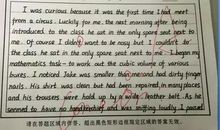 I was curious because it was the first time I had met
from a circus. Luckily for me, the next morning after being
introduced to the class he sat in the only spare seat next to
me. Of course I didn't want to be nosy but I couldn't to
the class he sat in the only spare seat next to me. I began my
mathematics task - to work out the cubic volume of various
bures. I noticed Jake was smaller than me and had dirty finger
nails. His shirt was clean but had been repaired in many places
and his trousers were held up by a wide leather belt. As he
seemed to have no handkerchief and was sniffing loudly I passed
请在各题目区域内作答,超出黑色矩形边框限定区域的答案无效。